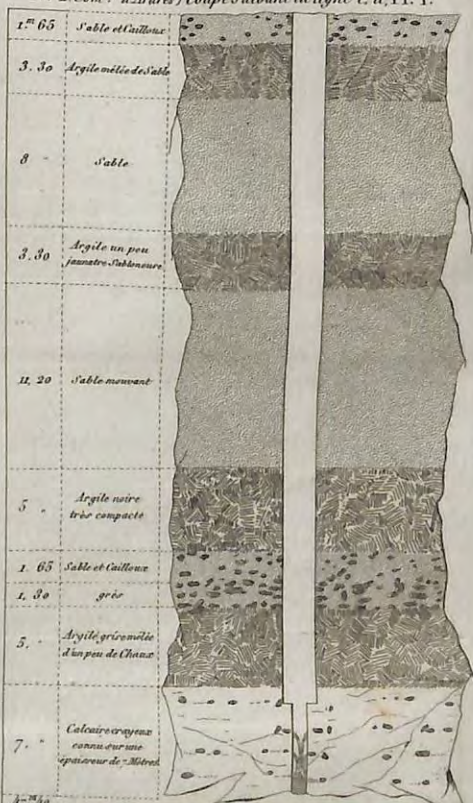 Coupe suivant la ligne c. d, Pl. 1.
1.ᵐ 65 Sable et Cailloux
3. 30 Argile mêlée de Sable
8 " Sable
3. 30 Argile un peu
jaunatre Sabloneuse
11, 20 Sable mouvant
5 " Argile noire
très compacte
1. 65 Sable et Cailloux
1, 30 grès
5. " Argile grise mêlée
d'un peu de Chaux
7. " Calcaire crayeux
connu sur une
épaisseur de 7 Mètres